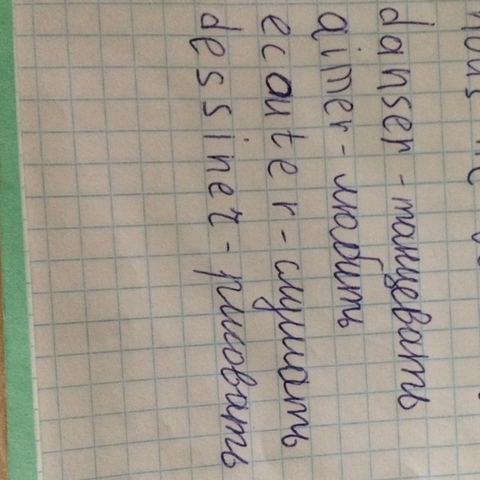 danser - танцевать
aimer - любить
ecauter - слушать
dessiner - рисовать